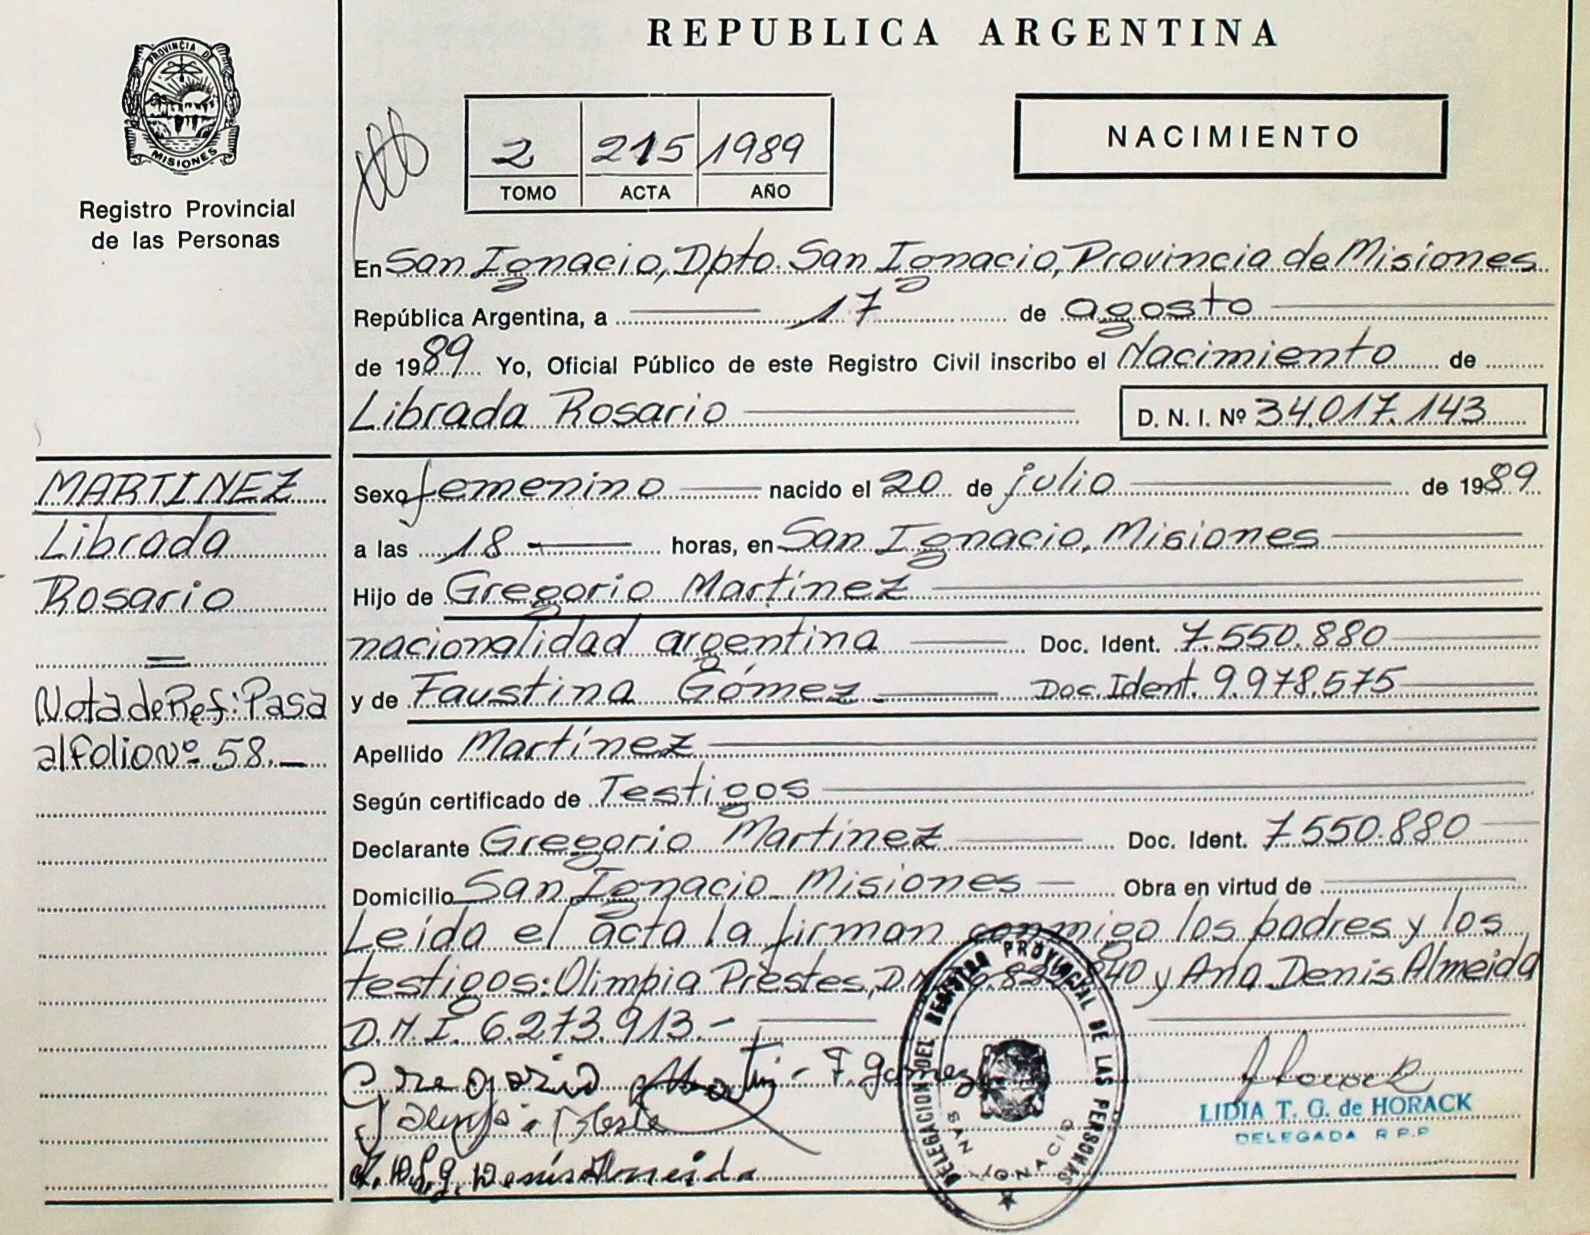 REPUBLICA ARGENTINA
PROVINCIA DE
MISIONES
Registro Provincial
de las Personas
2 215 1989
TOMO ACTA AÑO
NACIMIENTO
En San Ignacio, Dpto. San Ignacio, Provincia de Misiones
República Argentina, a 17 de agosto
de 1989 Yo, Oficial Público de este Registro Civil inscribo el Nacimiento de
Librada Rosario D. N. I. Nº 34.017.143
MARTINEZ
Librada
Rosario
Nota de Ref: Pasa
al folio nº 58.—
Sexo femenino nacido el 20 de julio de 1989
a las 18 horas, en San Ignacio, Misiones
Hijo de Gregorio Martínez
nacionalidad argentina Doc. Ident. 7.550.880
y de Faustina Gómez Doc. Ident. 9.978.575
Apellido Martínez
Según certificado de Testigos
Declarante Gregorio Martínez Doc. Ident. 7550.880
Domicilio San Ignacio Misiones Obra en virtud de
Leída el acta la firman conmigo los padres y los
testigos: Olimpia Prestes, y Ana Denis Almeida
D.N.I. 6.273.913.-
Gregorio - F. gomez
Denis Almeida
DELEGACION DEL REGISTRO PROVINCIAL DE LAS PERSONAS
SAN IGNACIO
LIDIA T. G. de HORACK
DELEGADA R.P.P